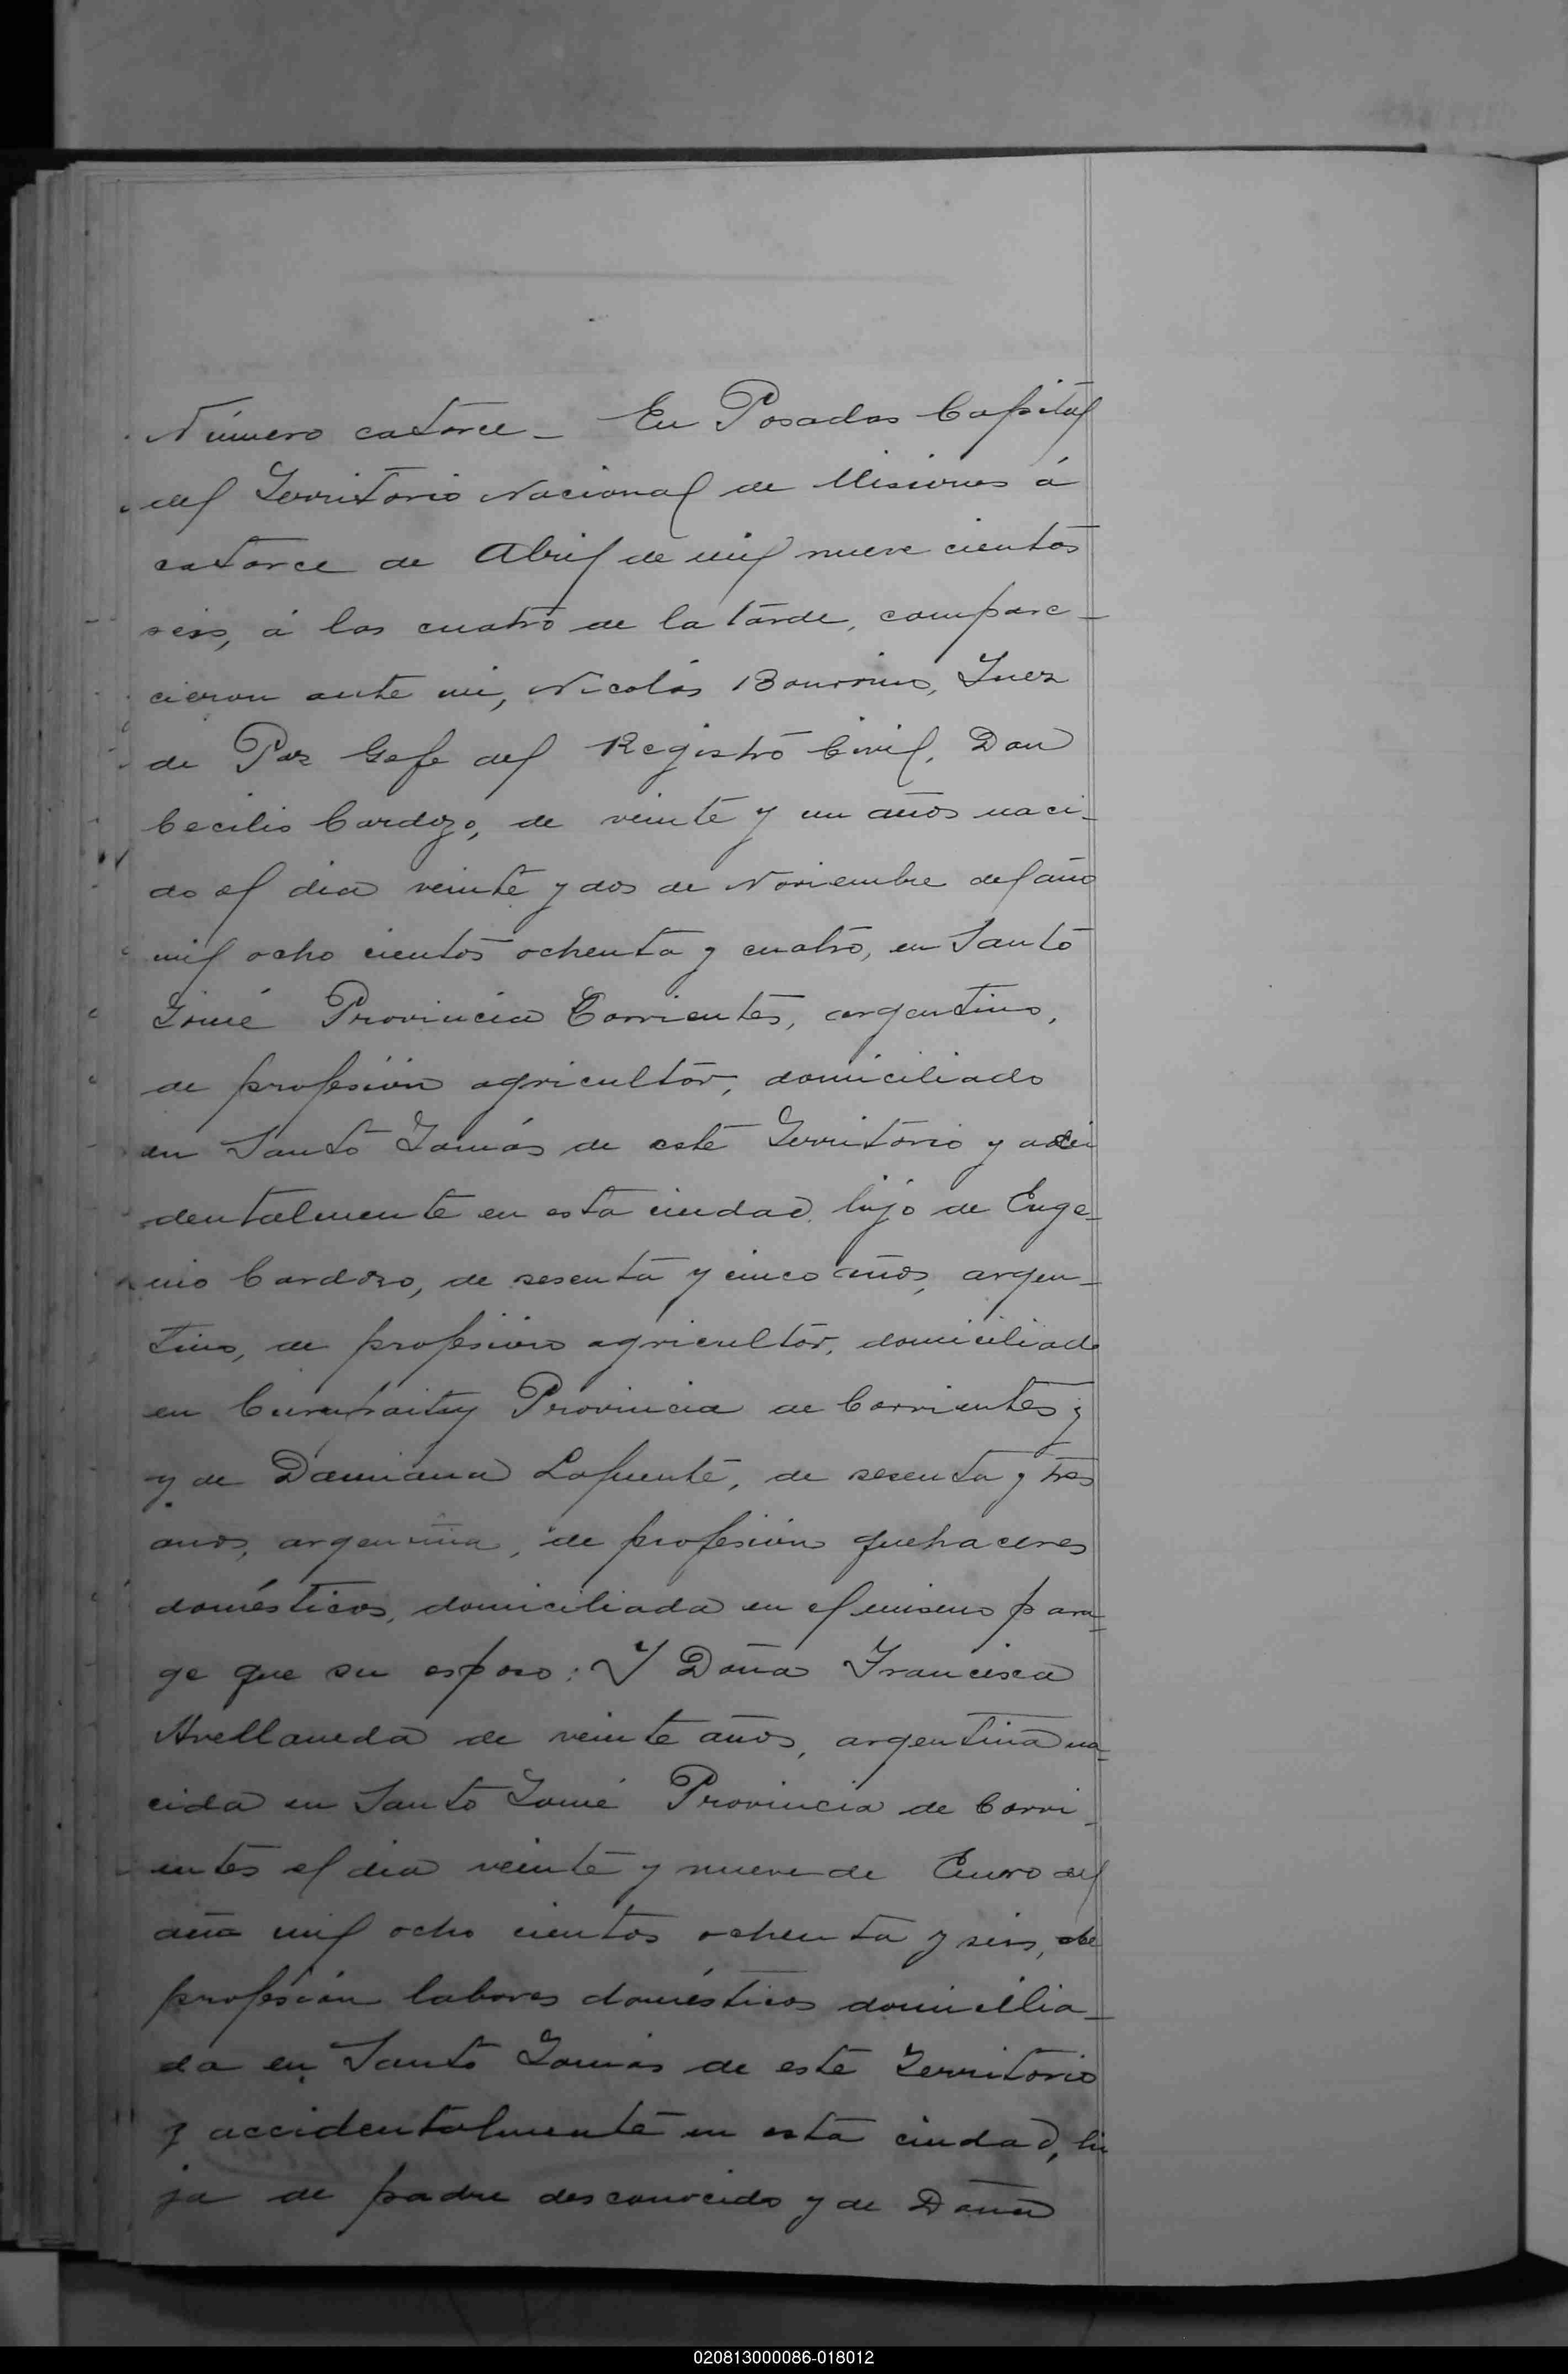 Número catorce - En Posadas Capital
del Territorio Nacional de Misiones á
catorce de Abril de mil nueve cientos
seis, á las cuatro de la tarde, compare-
cieron ante mi, Nicolás Bourrino, Juez
de Paz Gefe del Registro Civil, Don
Cecilio Cardozo, de veinte y un años naci-
do el dia veinte y dos de Noviembre del año
mil ocho cientos ochenta y cuatro, en Santo
Tomé Provincia Corrientes, argentino,
de profesión agricultor, domiciliado
en Santo Tomás de este Territorio y acci
dentalmente en esta ciudad, hijo de Euge-
nio Cardozo, de sesenta y cinco años, argen-
tino, de profesion agricultor, domiciliado
en Curupaity Provincia de Corrientes y
y de Damiana Lafuente, de sesenta y tres
años, argentina, de profesión quehaceres
domésticos, domiciliada en el mismo para-
ge que su esposo: Y Doña Francisca
Avellaneda de veinte años, argentina na-
cida en Santo Tomé Provincia de Corri-
entes el dia veinte y nueve de Enero del
año mil ocho cientos ochenta y seis, de
profesión labores domésticos domicilia-
da en Santo Tomás de este Territorio
y accidentalmente en esta ciudad, hi
ja de padre desconocido y de Doña
020813000086-018012